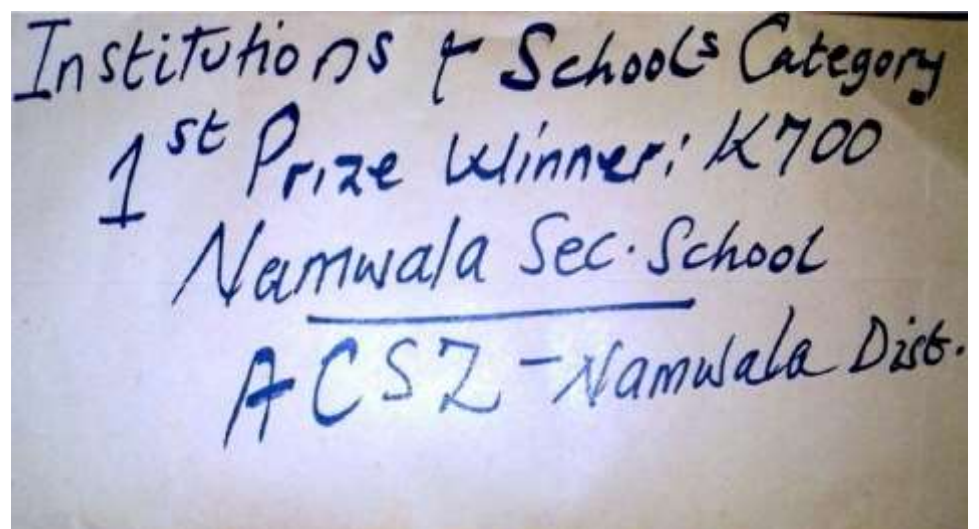 Institutions & Schools Category
1st Prize Winner: K700
Namwala Sec. School
ACSZ - Namwala Dist.